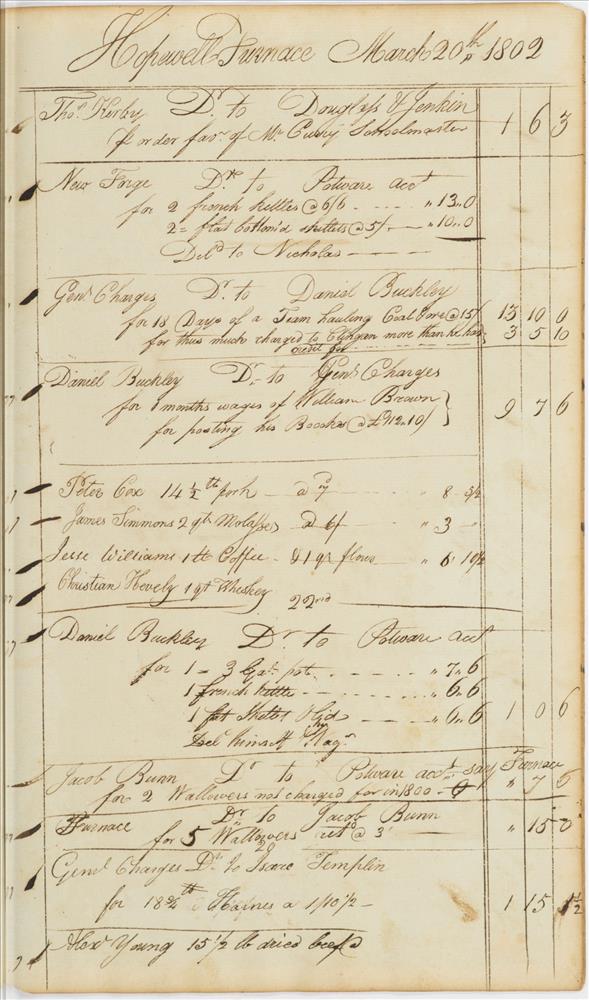 Hopewell Furnace March 20th 1802
Thos. Kerby Dr. to Douglass & Jenkin
pr order favr. of Mr Schoolmaster 1 6 3
New Forge Dr. to Potware acct
for 2 french kettles @ 6/6 - - - - " 13 " 0
2 = flat bottom'd skillets @ 5/ - - " 10 " 0
Deld to Nicholas
Genl. Charges Dr. to Daniel Buckley
for 18 Days of a Team hauling Coal @ 15/ 13 10 0
for thus much charged to more than he has 3 5 10
credit for
Daniel Buckley Dr. to Genl. Charges
for 1 months wages of William Brown
for posting his Books @ £ 9 7 6
Peter Cox 14 1/2 lb pork - a 7d - - - " 8 " 5 1/2
James Simmons 2 qts Molasses a 6/ - - - " 3 "
Jesse Williams 1 lb Coffee & 1 qr flour - - " 6 " 10 1/2
Christian Hevely 1 qt Whiskey
22nd
Daniel Buckley Dr. to Potware acct
for 1 - 3 Gal. pot - - - - " 7 " 6
1 french kettle - - - - " 6 " 6
1 flat Skillet - - - " 6 " 6 1 0 6
Deld himself
Jacob Bunn Dr. to Potware acct. say Furnace
for 2 Wallowers not charged for in 1800 - " 7 6
Furnace Dr. to Jacob Bunn
for 5 Wallowers @ 3 " 15 0
Genl Charges Dr. to Isaac Templin
for 18 3/4 lb Haines a 1/10 1/2 - 1 15 1 1/2
Alexr Young 15 1/2 lb dried beef